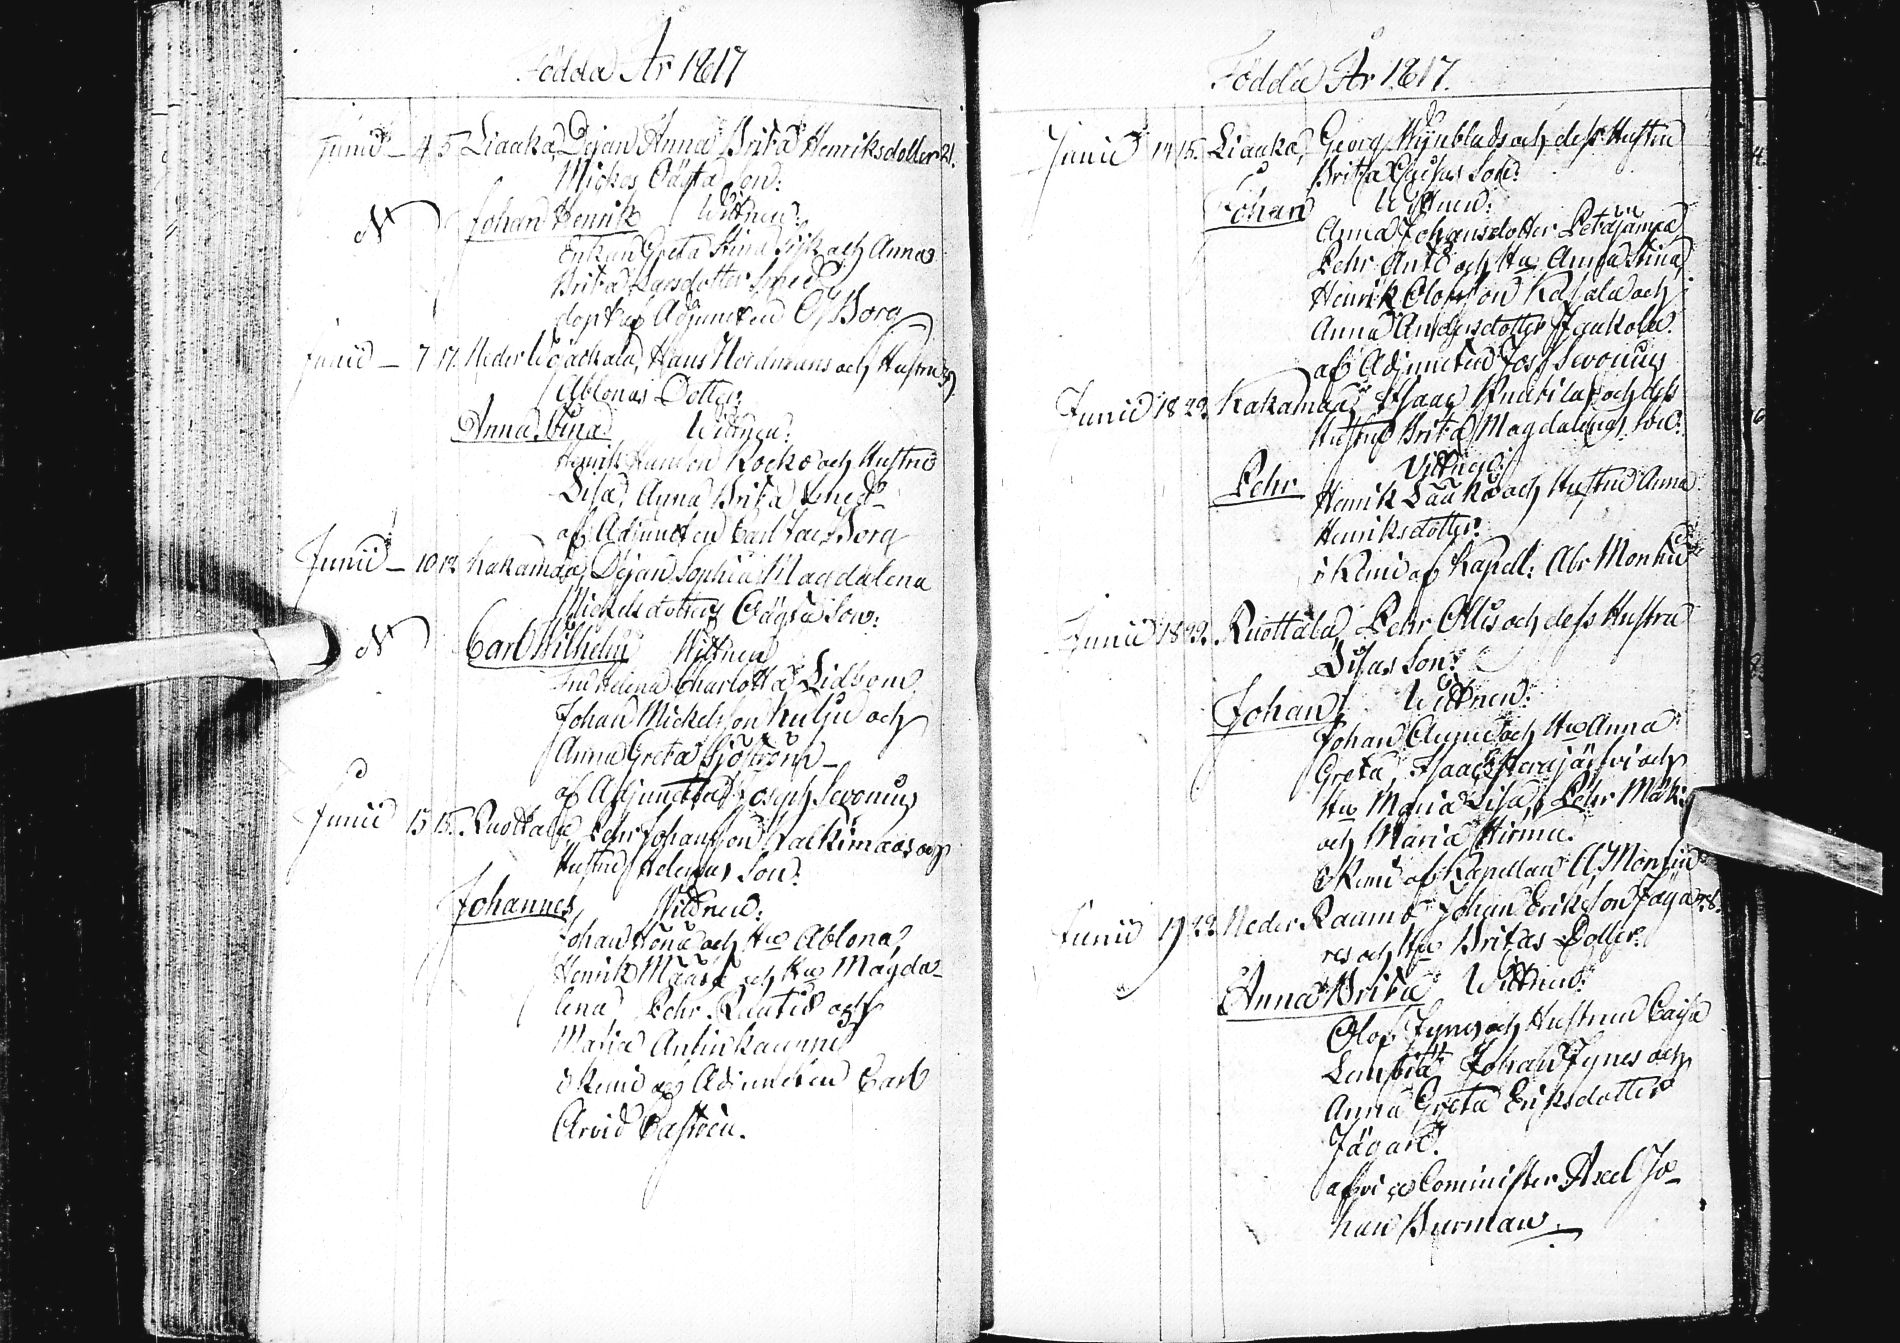 Födda År 1817
Junii – 4 5 Liaaka, Pigan Anna Brita Henriksdotter 21.
Mickos Oägta Son:
N Johan Henrik Wittnen:
Enkan Greta Stina och Anna
Brita Larsdotter
döpt af Adjuncten C J Borg
Junii – 7 17. Neder Hans Nordmans och Hustru
Ablonas Dotter:
Anna Stina Wittnen:
Henrik Kocko och Hustru
Lisa, Anna Brita
af Adjuncten Carl Borg
Junii – 10 12 Kakamaa, Pigan Sophia Magdalena
Mickelsdotters Oägta Son:
N Carl Wilhelm Wittnen
Fru Helena Charlotta Lidbom,
Johan Mickelsson Kulju och
Anna Greta Sjöström –
af Adjuncten Joseph Sevonius
Junii 15 15. Ruottala, Pehr Johansson Kalkimaas och
Hustru Helenas Son:
Johannes, Wittnen:
Johan och Hu Ablona,
Henrik och Hu Magda-
lena, Pehr och
Maria
af Adjuncten Carl
Arvid Castrén.
Födda År 1817.
Junii 14 15. Liaaka, Georg Wynblads och dess Hustru
Brita Cajsas Son:
Johan Wittnen:
Anna Johansdotter
Pehr Antó och Hu Anna Stina,
Henrik Olofsson och
Anna Andersdotter
af Adjuncten Jos Sevonius
Junii 18 22. Kakamaa, Isaac och dess
Hustru Brita Magdalenas Son:
Pehr Wittnen:
Henrik och Hustru Anna
Henriksdotter:
af Kapell: Abr Montin
Junii 18 22. Ruottala Pehr Ollis och dess Hustru
Lisas Son:
Johan Wittnen:
Johan och Hu Anna
Greta, Isaac och
Hu Maria Lisa, Pehr Mäki
och Maria
af Kapellan A Montin
Junii 19 22 Neder Raumo Johan Eriksson Jäga- 28.
res och Hu Britas Dotter:
Anna Brita Wittnen:
Olof Fynes och Hustrun Caisa
Johan Fynes och
Anna Greta Eriksdotter
Jägare.
af vice Cominister Axel Jo-
han Burman.